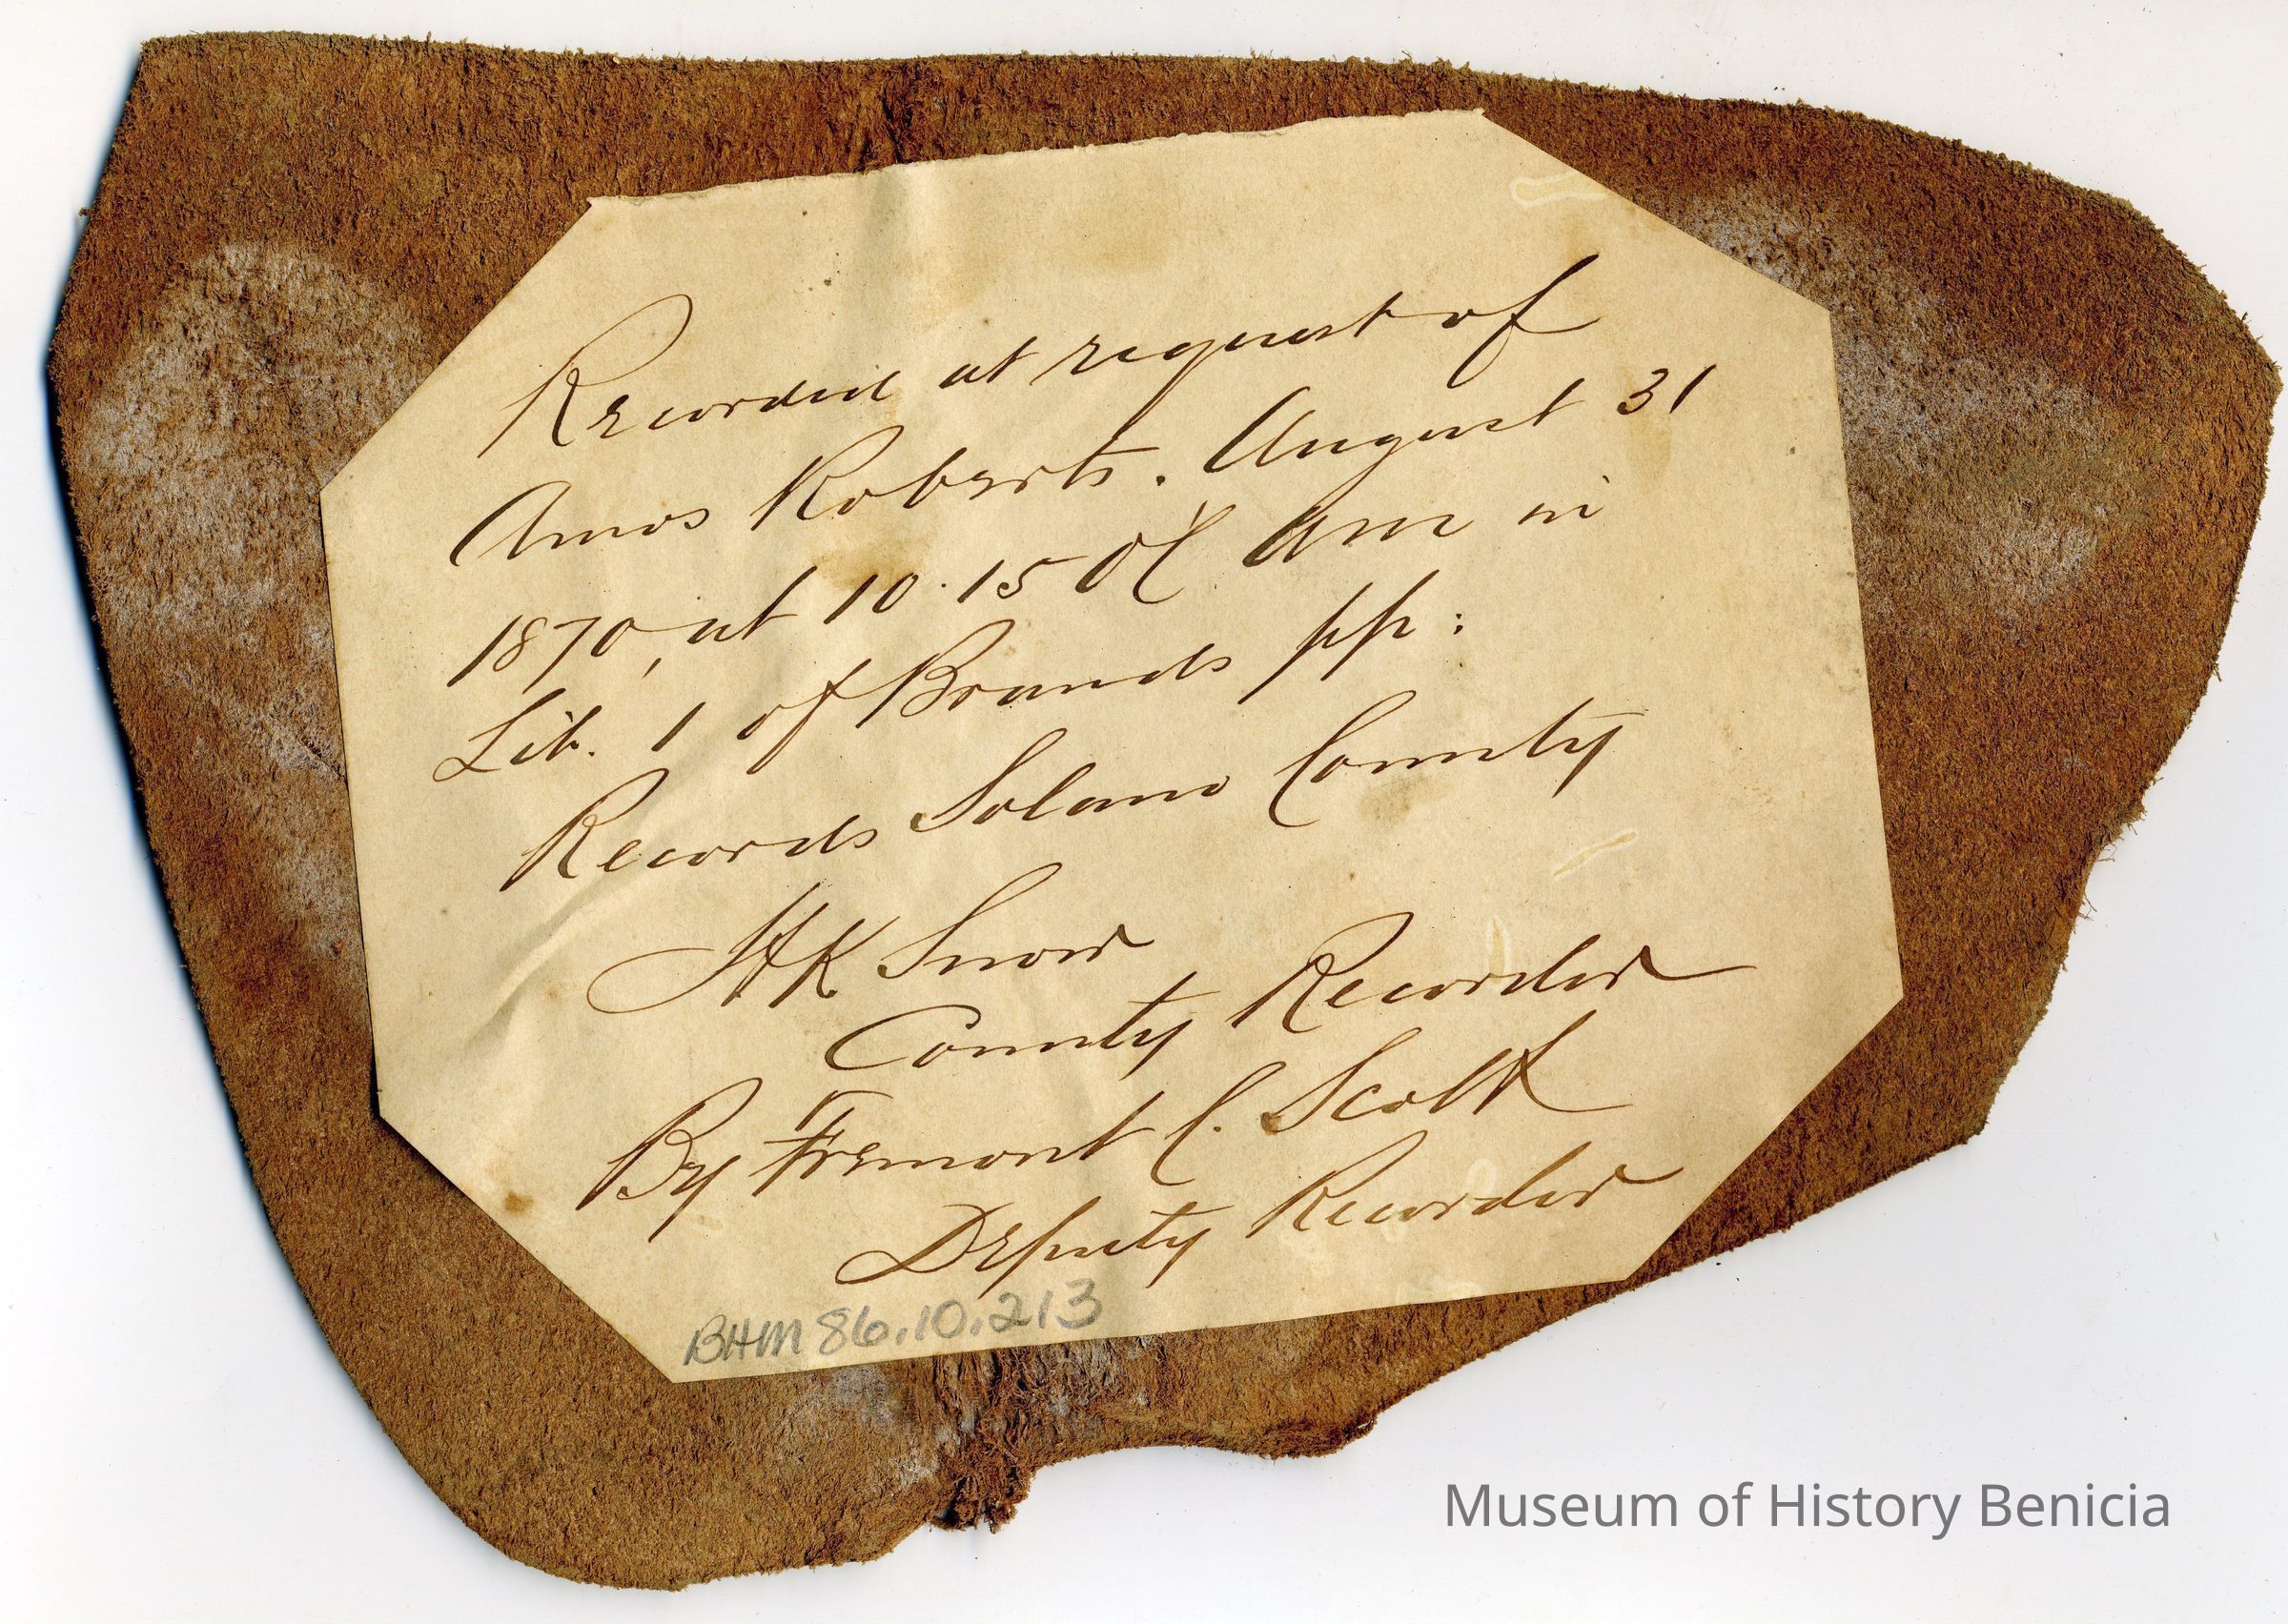 Recorded at request of
Amos Roberts. August 31
1870, at 10.15 O'C AM in
Lib. 1 of Brands pp:
Records Solano County
HK Snow
County Recorder
By Fremont C. Scott
Deputy Recorder
BHM 86.10.213
Museum of History Benicia